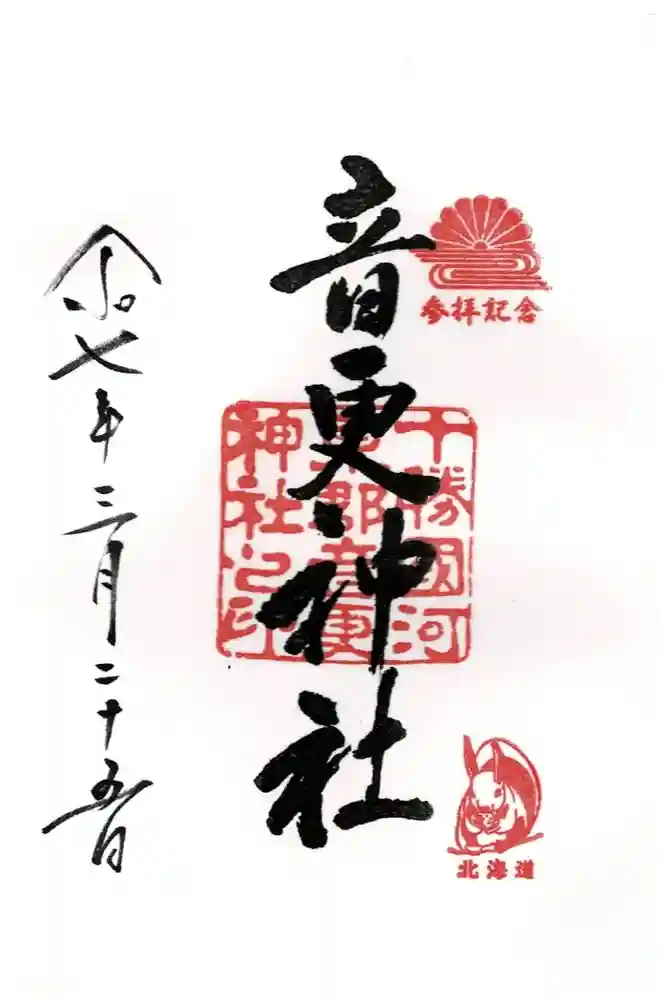 参拝記念
音更神社
十勝國河
東郡音更
神社之印
北海道
令和七年三月二十五日